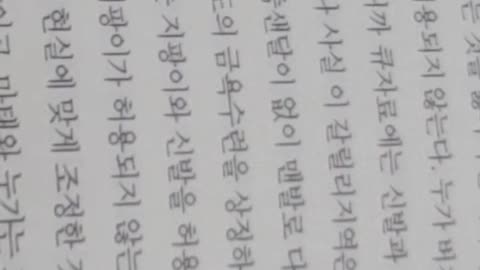 는 것을
용되지 않는다. 누가
니까 큐자료에는 신발과
사실이 갈릴리지역은
없이 맨발로 다
도의 금욕수련을 상징하
지팡이와 신발을 허용
팡이가 허용되지 않는
현실에 맞게 조정한
마태와 누가는